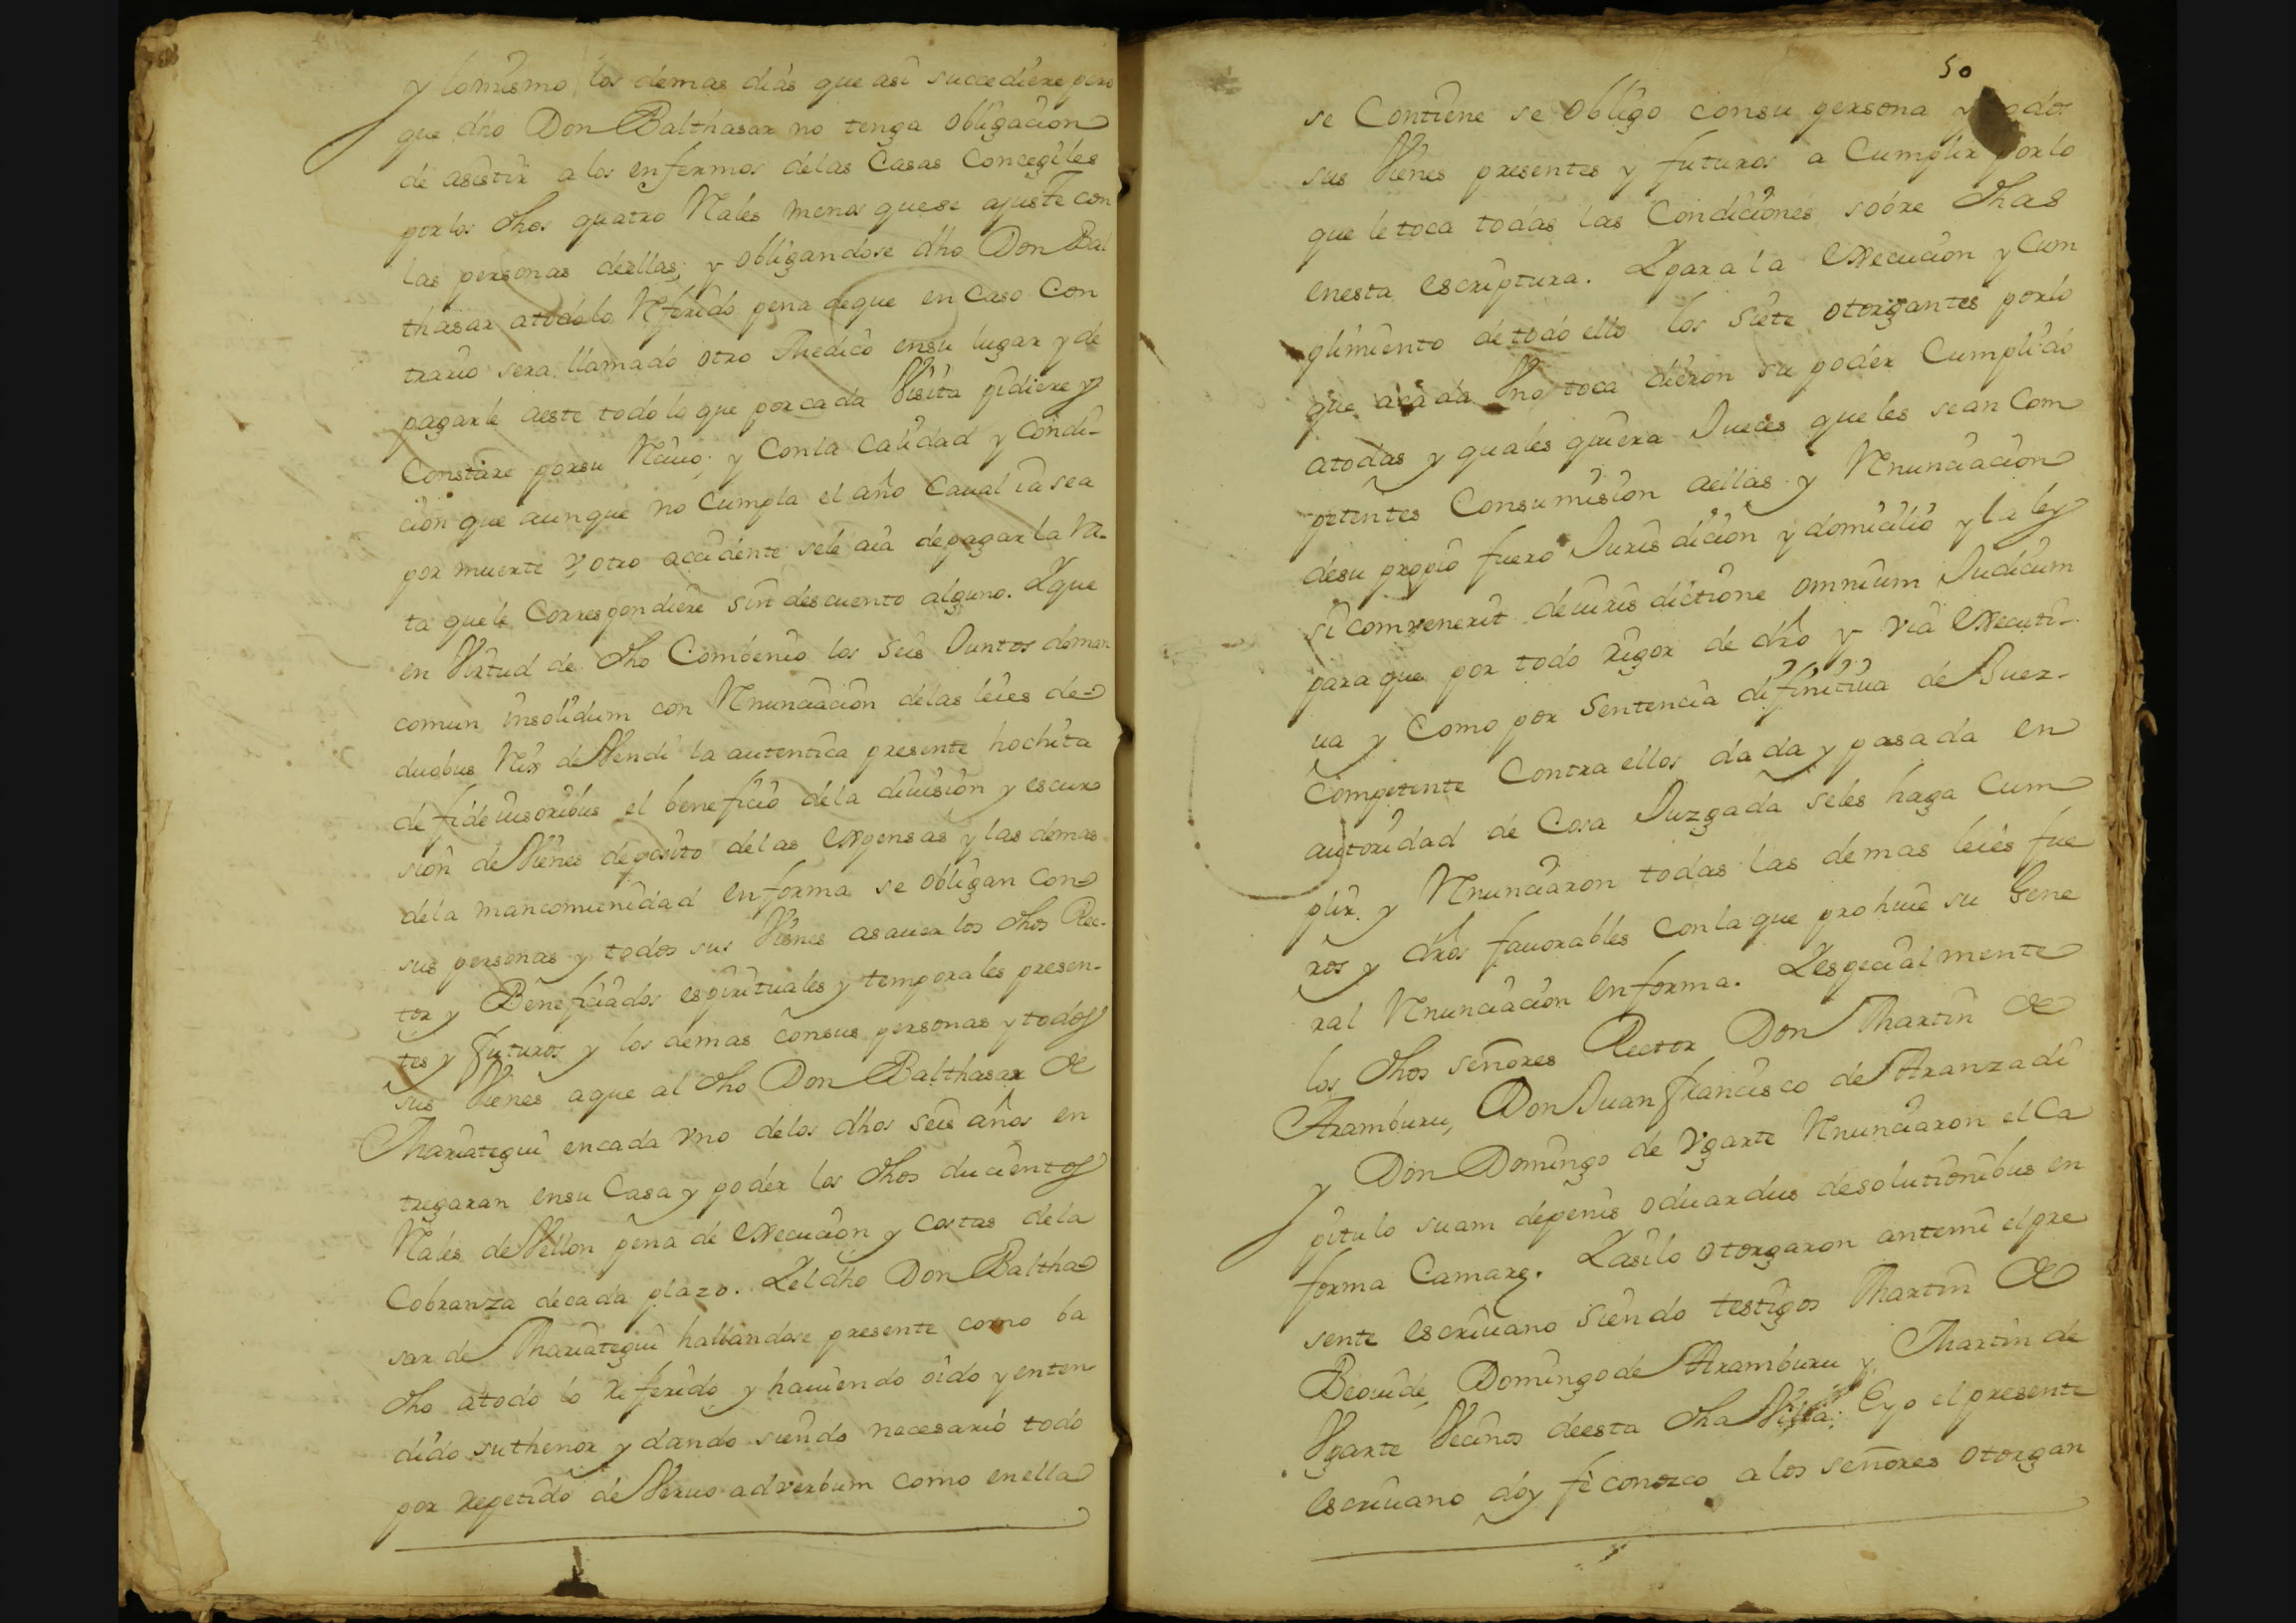 y lo mismo los demas dias que asi succediere pero
que dho Don Balthasar no tenga obligacion
de asistir a los enfermos delas Casas Concegiles
por los dhos quatro Rales menos quese ajuste con
las personas deellas; y obligandose dho Don Bal
thasar atodolo Referido pena deque en Caso Con
trario sera llamado otro Medico ensu lugar y de
pagarle aeste todo lo que por cada Visita pidiere y
Constare porsu Recivo; y Conla Calidad y Condi-
cion que aunque no Cumpla el año Caual ia sea
por muerte v otro accidente sele aia depagar la Ra-
ta quele Correspondiere sin descuento alguno. Y que
en Virtud de dho Combenio los seis Juntos deman
comun insolidum con Renunciacion delas leies de
duobus Reis deVendi la autentica presente hochita
de fideiusoribus el beneficio dela diuision y escur
sion deVienes deposito delas expensas y las demas
dela mancomunidad enforma se obligan con
sus personas y todos sus Vienes asauer los dhos Rec-
tor y Beneficiados espirituales y temporales presen-
tes y futuros y los demas consus personas y todos
sus Vienes aque al dho Don Balthasar de
Mariategui encada vno delos dhos seis años en
tregaran ensu Casa y poder los dhos ducientos
Rales deVellon pena de execucion y costas dela
Cobranza decada plazo. Y el dho Don Baltha
sar de Mariategui hallandose presente como ba
dho atodo lo Referido y hauiendo oido y enten
dido suthenor y dando siendo necesario todo
por repetido deVeruo adverbum como enella
50
se Contiene se obligo consu persona y todos
sus Vienes presentes y futuros a Cumplir por lo
que le toca todas las Condiciones sobre dhas
enesta escriptura. Y para la execucion y Cum
plimiento de todo ello los siete otorgantes porlo
que acada Vno toca dieron su poder Cumplido
atodas y quales quiera Jueces queles sean Com
petentes Consumision aellas y Renunciacion
desu propio fuero Jurisdicion y domicilio y la ley
si comvenerit deiurisdictione omnium Judicum
para que por todo rigor de dro y via executi-
ua y Como por sentencia difinitiua de Juez-
Competente Contra ellos dada y pasada en
autoridad de Cosa Juzgada seles haga Cum
plir y Renunciaron todas las demas leies fue
ros y dros fauorables conla que prohiue su Gene
ral Renunciacion enforma. Y especialmente
los dhos señores Rector Don Martin de
Aramburu, Don Juan Francisco de Aranzadi
y Don Domingo de Vgarte Renunciaron el Ca
pitulo suam depenis oduardus desolutionibus en
forma Camare. Y asilo otorgaron antemi el pre
sente escriuano siendo testigos Martin de
Beouide, Domingo de Aramburu y Martin de
Vgarte Vecinos deesta dha Villa; E yo el presente
escriuano doy fe conozco a los señores otorgan